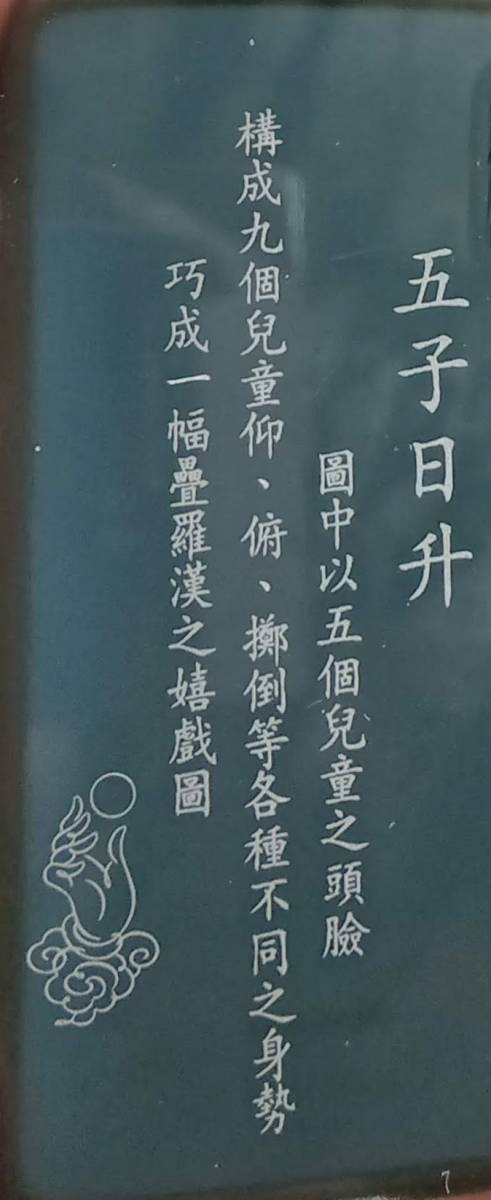 五子日升
圖中以五個兒童之頭臉
構成九個兒童仰、俯、擲倒等各種不同之身勢
巧成一幅疊羅漢之嬉戲圖
7